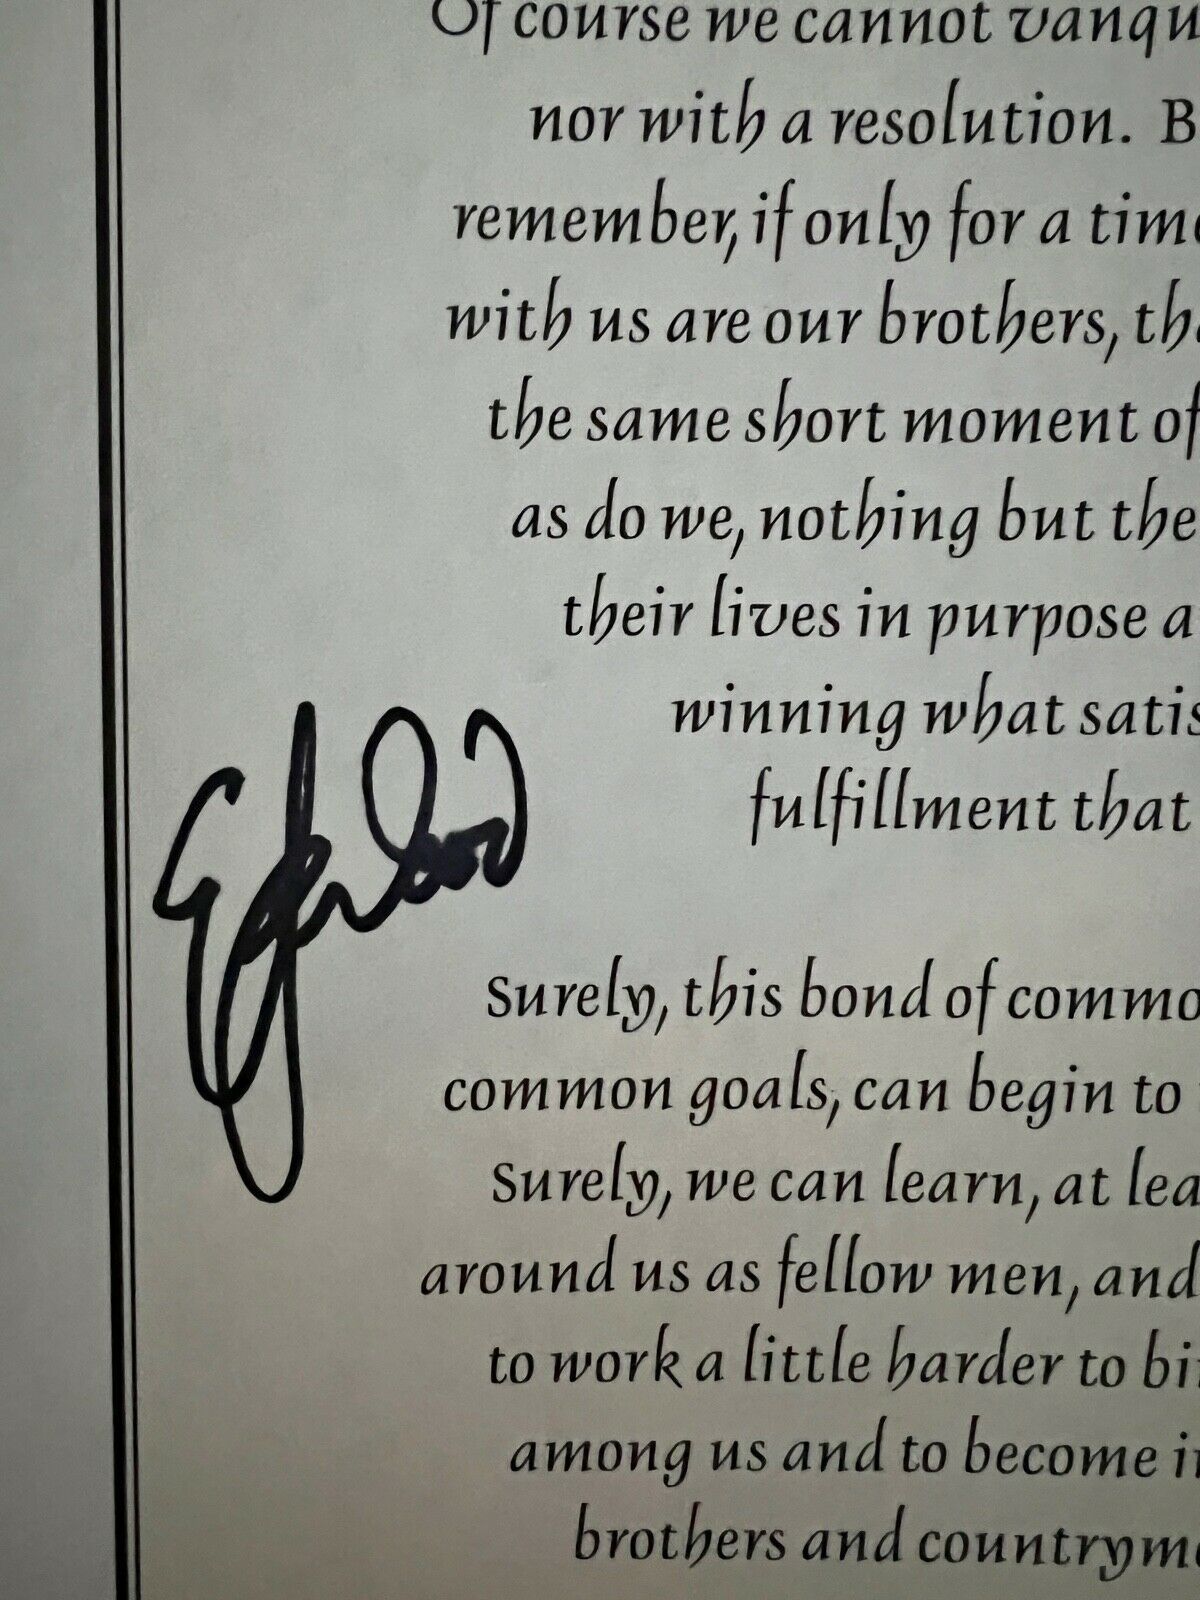 Of course we cannot vanqu
nor with a resolution. B
remember, if only for a time
with us are our brothers, tha
the same short moment of
as do we, nothing but the
their lives in purpose a
winning what satis
fulfillment that
Surely, this bond of commo
common goals, can begin to
Surely, we can learn, at lea
around us as fellow men, and
to work a little harder to bin
among us and to become in
brothers and countryme